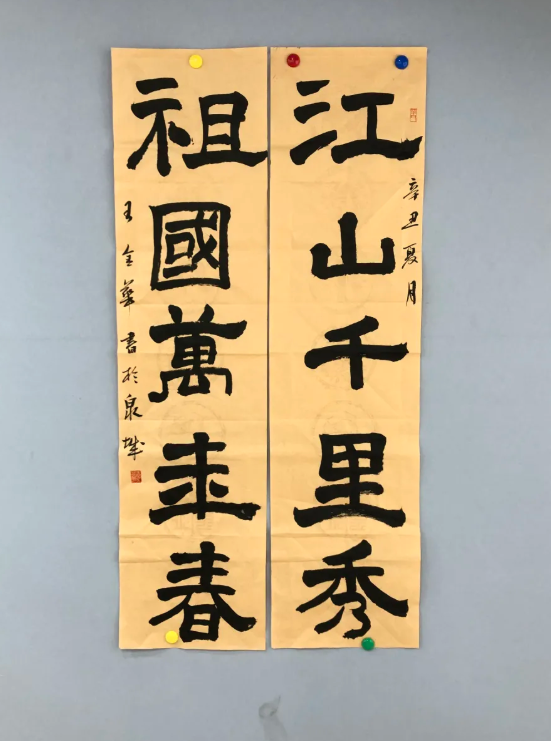 江山千里秀
辛丑夏月
祖國萬年春
王全華書於泉城